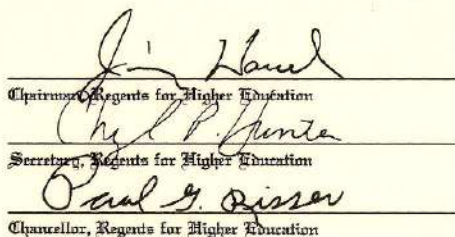 Jim
Chairman, Regents for Higher Education
Cheryl P. Hunter
Secretary, Regents for Higher Education
Paul G. Risser
Chancellor, Regents for Higher Education